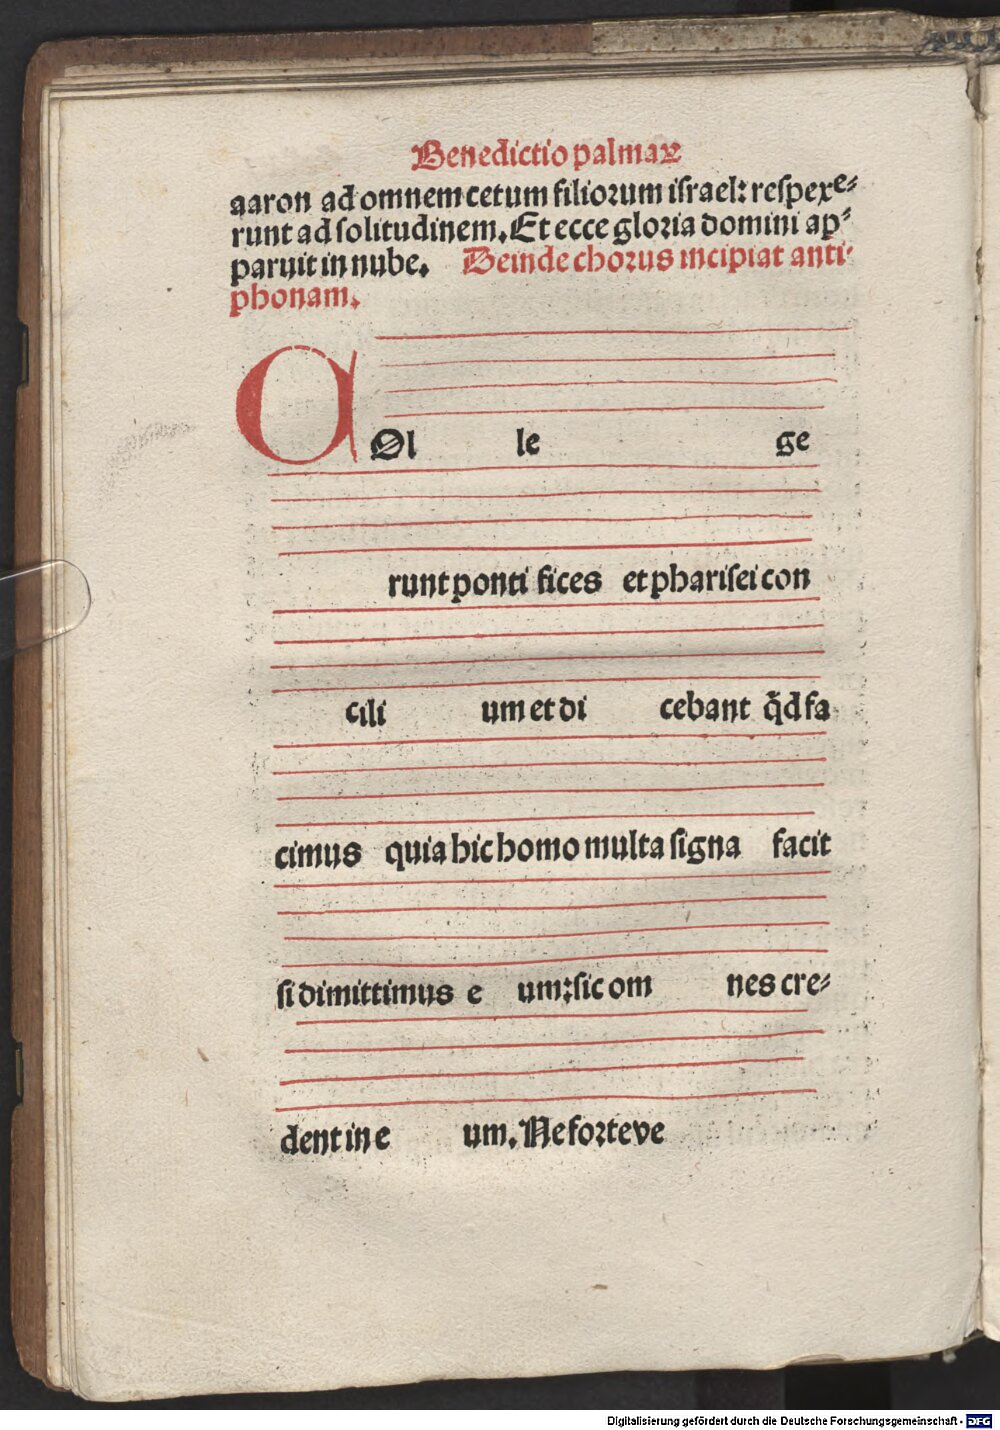 Benedictio palmaꝝ
aaron ad omnem cetum filiorum israel: respexe-
runt ad solitudinem. Et ecce gloria domini ap-
paruit in nube. Deinde chorus incipiat anti-
phonam.
C Ol le ge
runt ponti fices et pharisei con
cili um et di cebant q̃d fa
cimus quia hic homo multa signa facit
si dimittimus e um: sic om nes cre-
dent in e um. Ne forte ve
Digitalisierung gefördert durch die Deutsche Forschungsgemeinschaft - DFG